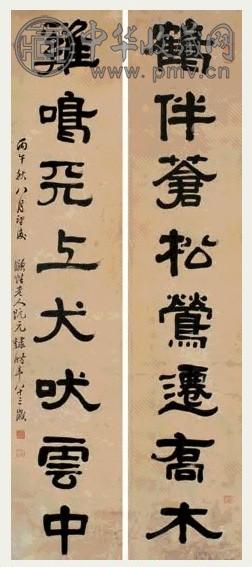 中华收藏网
www.pmv.cn
鶴伴蒼松鶯遷喬木
雞鳴天上犬吠雲中
丙午秋八月望後 頤性老人阮元隸時年八十三歲